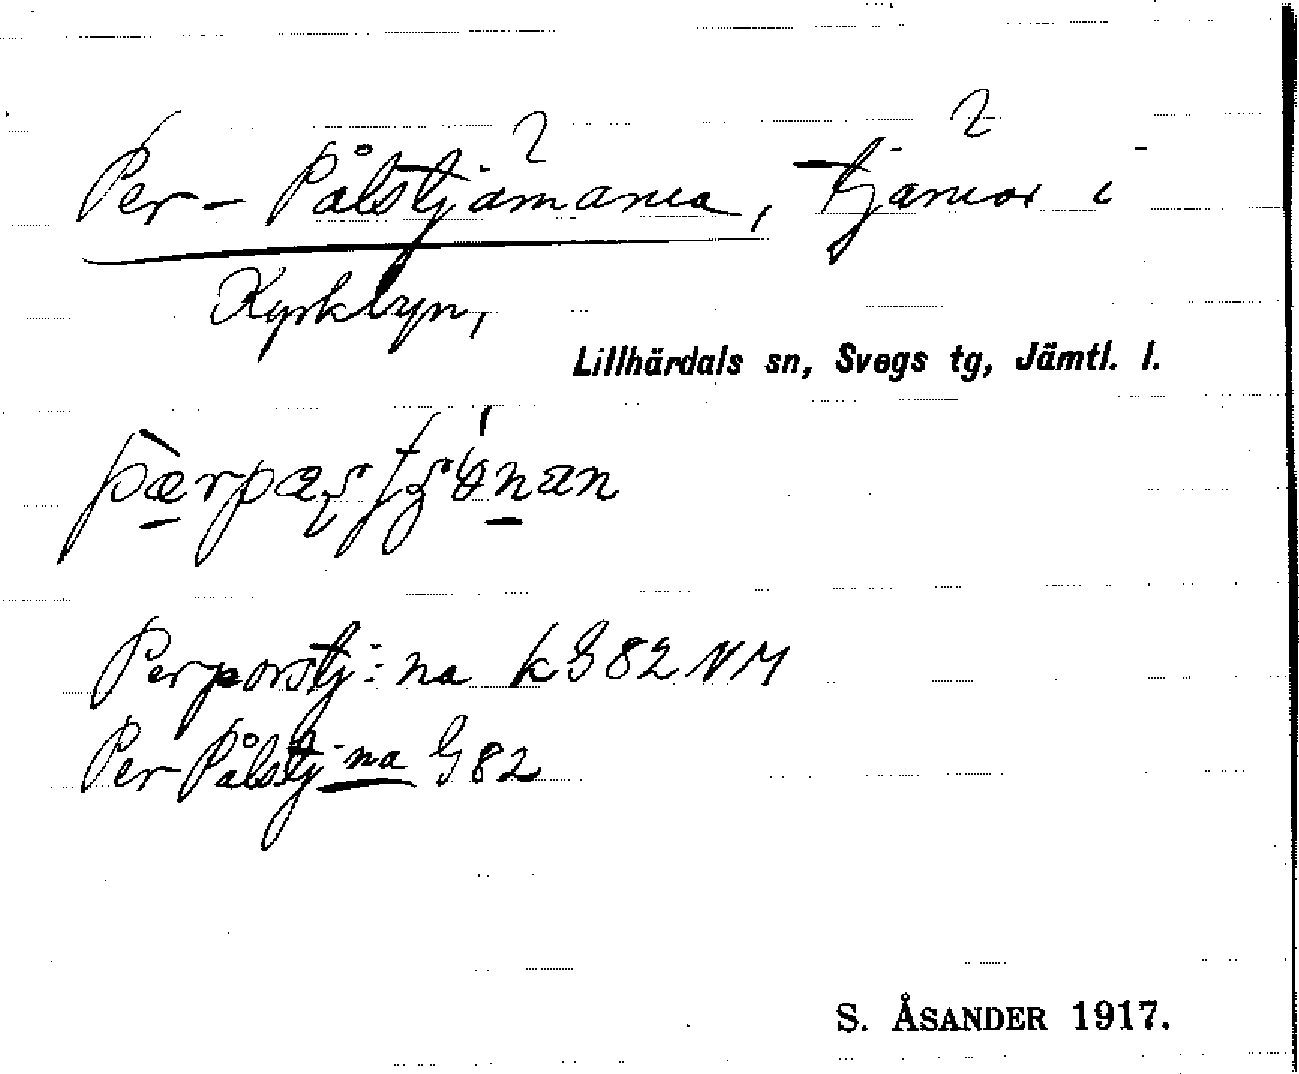 Per-Pålstjärnarna, tjärnar i
Kyrkbyn,
Lillhärdals sn, Svegs tg, Jämtl. l.
Perporstj:na k G 82 NM
Per Pålstj:na G 82
S. ÅSANDER 1917.